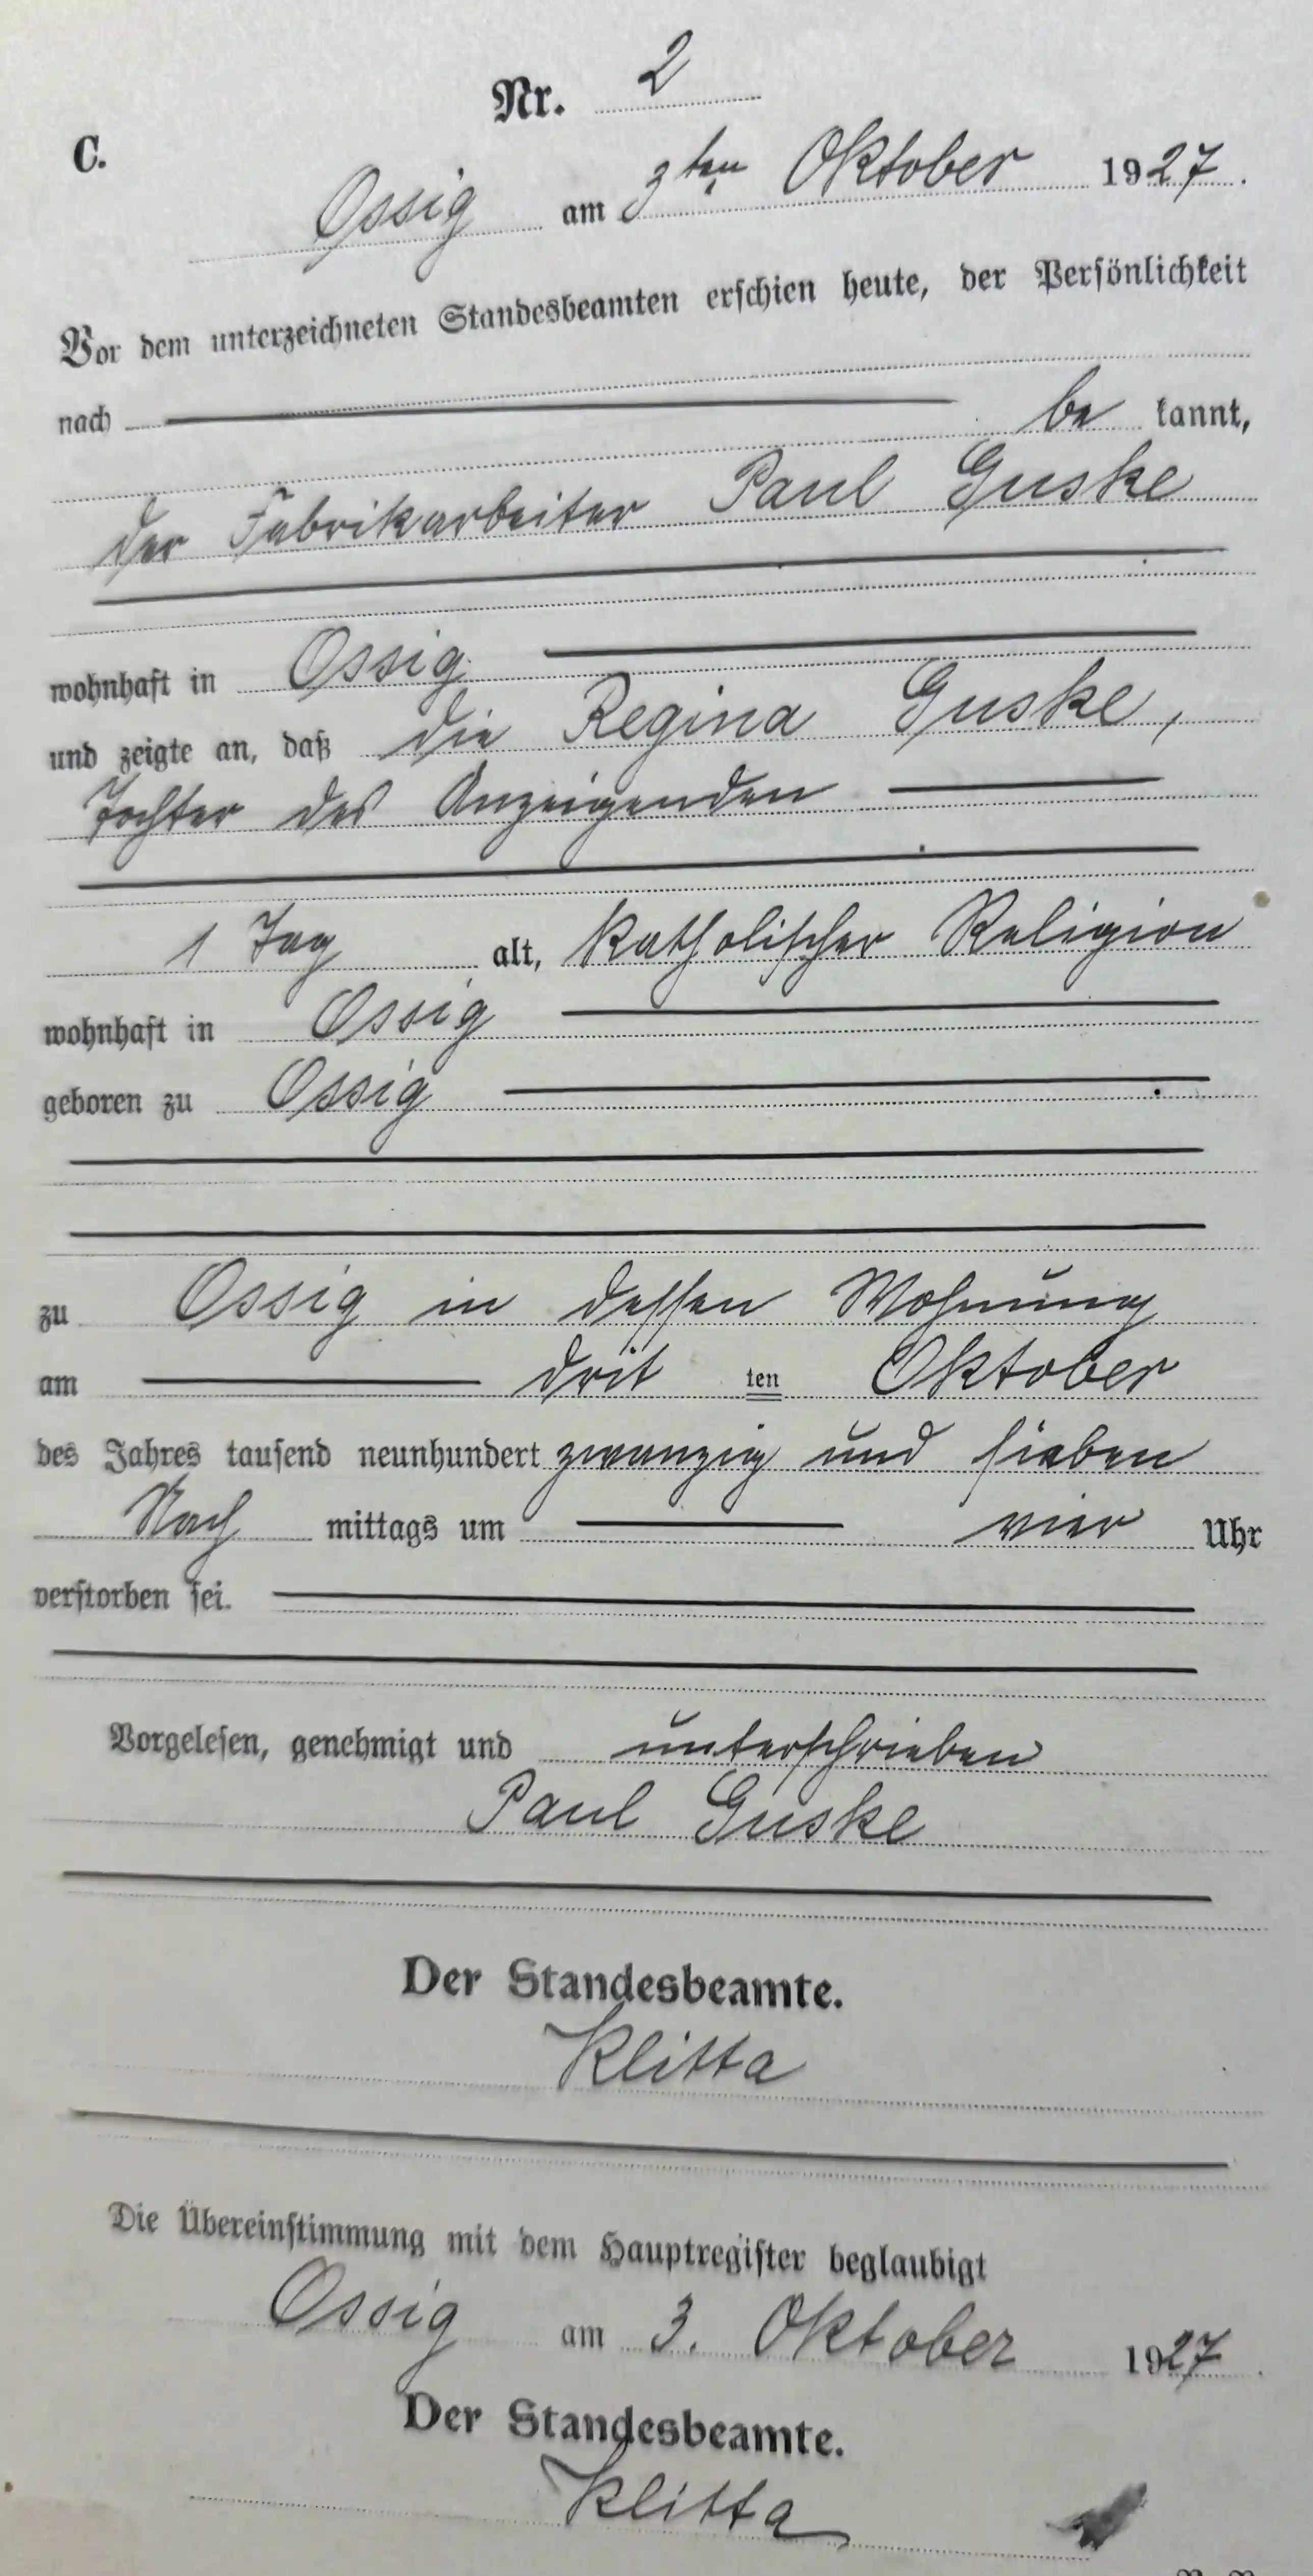 Nr. 2
C.
Ossig am 3ten Oktober 1927.
Vor dem unterzeichneten Standesbeamten erschien heute, der Persönlichkeit
nach be kannt,
der Fabrikarbeiter Paul Guske
wohnhaft in Ossig
und zeigte an, daß die Regina Guske,
Tochter des Anzeigenden
1 Tag alt, katholischer Religion
wohnhaft in Ossig
geboren zu Ossig
zu Ossig in dessen Wohnung
am drit ten Oktober
des Jahres tausend neunhundert zwanzig und sieben
Nach mittags um vier Uhr
verstorben sei.
Vorgelesen, genehmigt und unterschrieben
Paul Guske
Der Standesbeamte.
Klitta
Die Übereinstimmung mit dem Hauptregister beglaubigt
Ossig am 3. Oktober 1927.
Der Standesbeamte.
Klitta